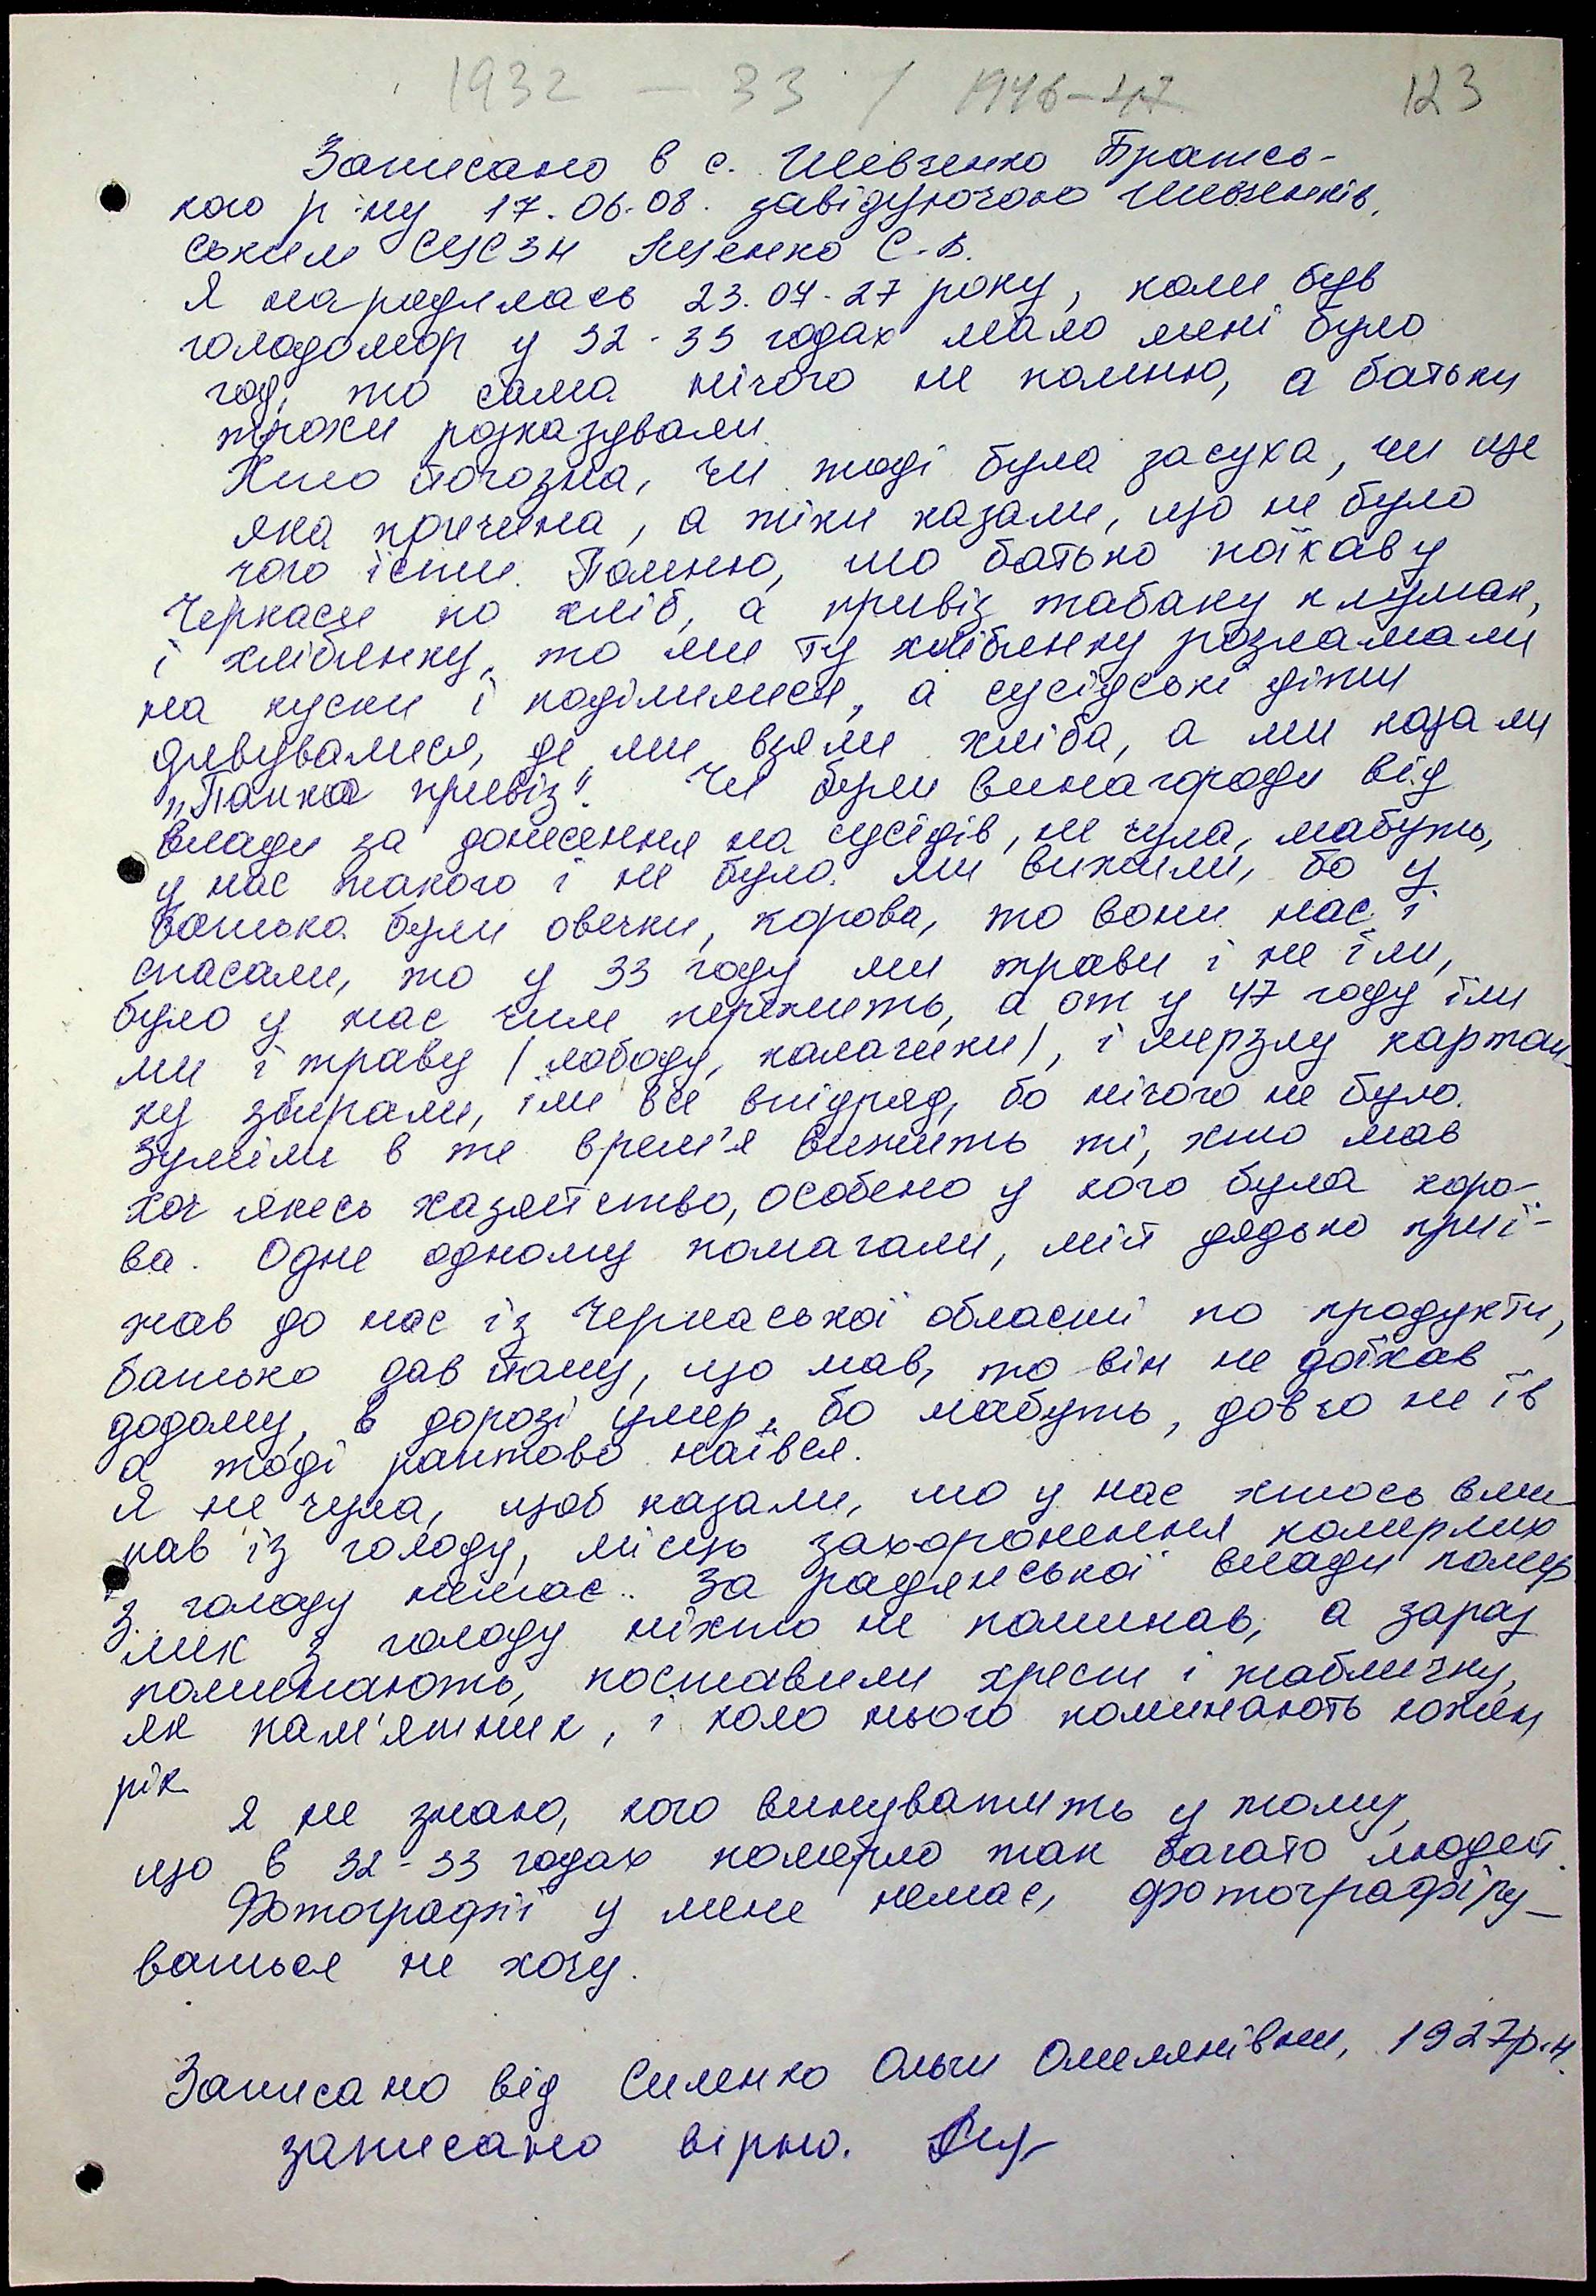 1932 - 33 / 1946-47 123
Записано в с. Шевченко Братсь-
кого р-ну 17.06.08. завідуючою Шевченків.
ським СЦСЗН Яценко С.В.
Я народилась 23.07.27 року, коли був
голодомор у 32-33 годах мало мені було
год, то сама нічого не помню, а батьки
трохи розказували.
Хто його зна, чи тоді була засуха, чи ще
яка причина, а тіки казали, що не було
чого їсти. Помню, шо батько поїхав у
Черкаси по хліб, а привіз табаку клумак,
і хлібинку, то ми ту хлібинку розламали
на куски і поділилися, а сусідські діти
дивувалися, де ми взяли хліба, а ми казали
„Папка привіз". Чи були винагороди від
влади за донесення на сусідів, не чула, мабуть,
у нас такого і не було. Ми вижили, бо у
батька були овечки, корова, то вони нас і
спасали, то у 33 году ми трави і не їли,
було у нас чим пережить, а от у 47 году їли
ми і траву (лободу, калачики), і мерзлу картош-
ку збирали, їли все впідряд, бо нічого не було.
Зуміли в те врем'я вижить ті, хто мав
хоч якесь хазяйство, особено у кого була коро-
ва. Одне одному помагали, мій дядько приї-
жав до нас із Черкаської області по продукти,
батько дав йому, що мав, то він не доїхав
додому, в дорозі умер, бо мабуть, довго не їв
а тоді раптово наївся.
Я не чула, щоб казали, шо у нас хтось вми-
рав із голоду, місць захоронення померлих
з голоду немає. За радянської влади помер-
лих з голоду ніхто не поминав, а зараз
поминають, поставили хрест і табличку,
як пам'ятник, і коло нього поминають кожен
рік
Я не знаю, кого винуватить у тому,
що в 32-33 годах померло так багато людей.
Фотографії у мене немає, фотографіру-
ваться не хочу.
Записано від Силенко Ольги Омелянівни, 1927р.н.
записано вірно.